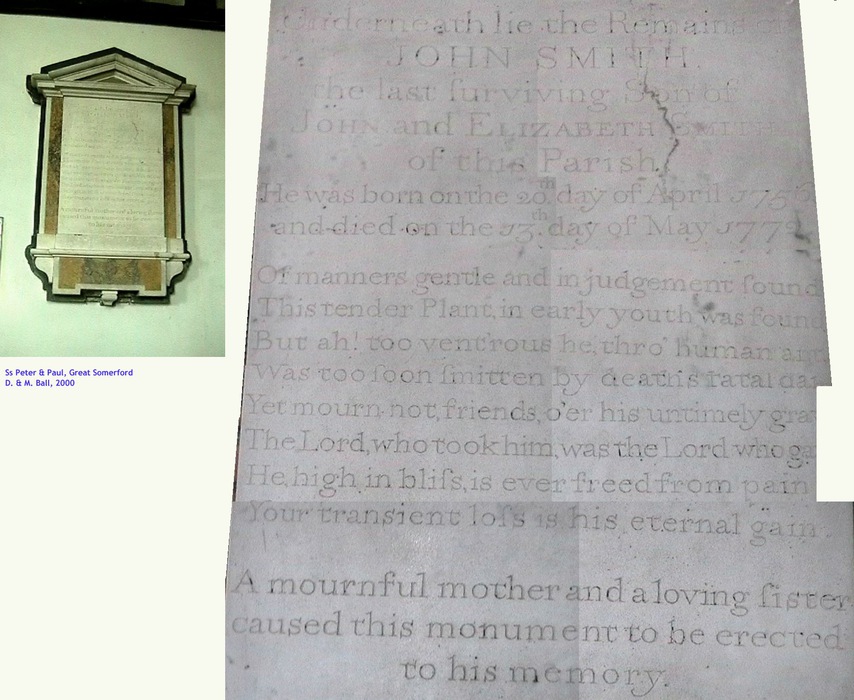 Underneath lie the Remains of
JOHN SMITH.
the last ſurviving Son of
JOHN and ELIZABETH SMITH
of this Parish.
He was born on the 20th. day of April
and died on the 13th. day of May
Of manners gentle and in judgement ſound
This tender Plant, in early youth was found
But ah! too vent'rous he, thro' human
Was too ſoon ſmitten by death's fatal
Yet mourn not, friends, o'er his untimely
The Lord, who took him, was the Lord who
He, high in bliſs, is ever freed from pain
Your transient loſs is his eternal gain.
A mournful mother and a loving ſister
caused this monument to be erected
to his memory.
Ss Peter & Paul, Great Somerford
D. & M. Ball, 2000